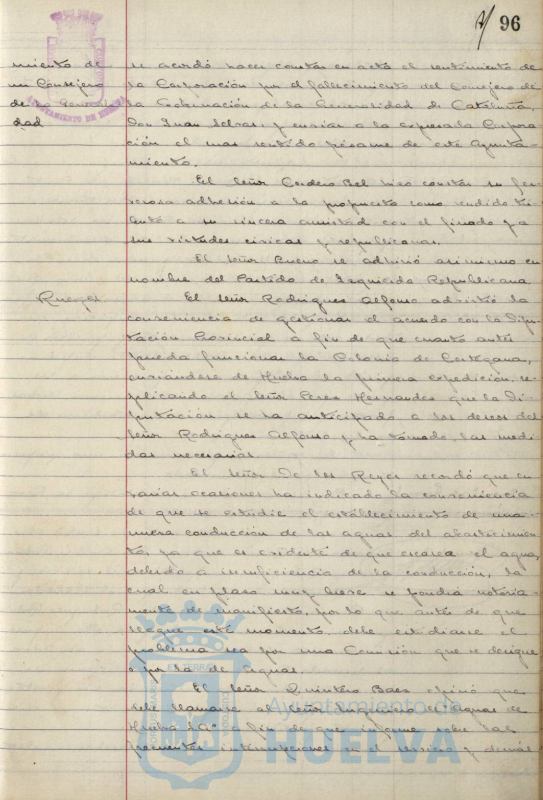 96
miento de
un Consejero
de la Generali
dad
AYUNTAMIENTO DE HUELVA
se acordó hacer constar en acta el sentimiento de
la Corporación por el fallecimiento del Consejero de
la Gobernación de la Generalidad de Cataluña,
Don Juan Selvas, y enviar a la expresada Corpora
ción el mas sentido pésame de este Ayunta-
miento.
El Señor Cordero Bel hizo constar su fer
vorosa adhesión a la propuesta como rendido tri
buto a su sincera amistad con el finado y a
sus virtudes cívicas y republicanas.
El Señor Bueno se adhirió asimismo en
nombre del Partido de Izquierda Republicana
Ruegos
El Señor Rodriguez Alfonso advirtió la
conveniencia de gestionar el acuerdo con la Dipu
tación Provincial a fin de que cuanto antes
pueda funcionar la Colonia de Cortegana,
enviándose de Huelva la primera expedición, re
plicando el Señor Perez Hernandez que la Di
putación se ha anticipado a los deseos del
Señor Rodriguez Alfonso y ha tomado las medi
das necesarias.
El Señor De los Reyes recordó que en
varias ocasiones ha indicado la conveniencia
de que se estudie el establecimiento de una
nueva conducción de las aguas del abastecimien
to, ya que es evidente de que escasea el agua,
debido a insuficiencia de la conducción, la
cual en plazo muy breve se pondrá notoria-
mente de manifiesto, por lo que antes de que
llegue este momento debe estudiarse el
problema sea por una Comisión que se designe
o por la de Aguas.
El Señor Quintero Baez opinó que
debe llamarse al Señor Ingeniero de Aguas de
Huelva S.A. a fin de que informe sobre las
frecuentes interrupciones en el servicio y demás
Ayuntamiento de
HUELVA